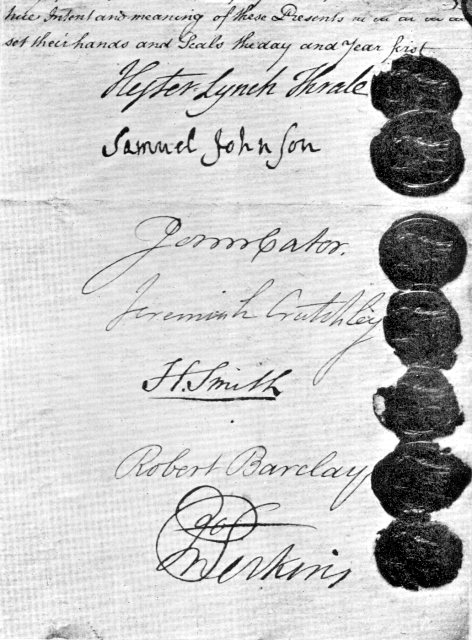 true Intent and meaning of these Presents
set their hands and Seals the day and Year first
Hester Lynch Thrale
Samuel Johnson
John Cator.
Jeremiah Crutchley
H. Smith
Robert Barclay
Jo Perkins